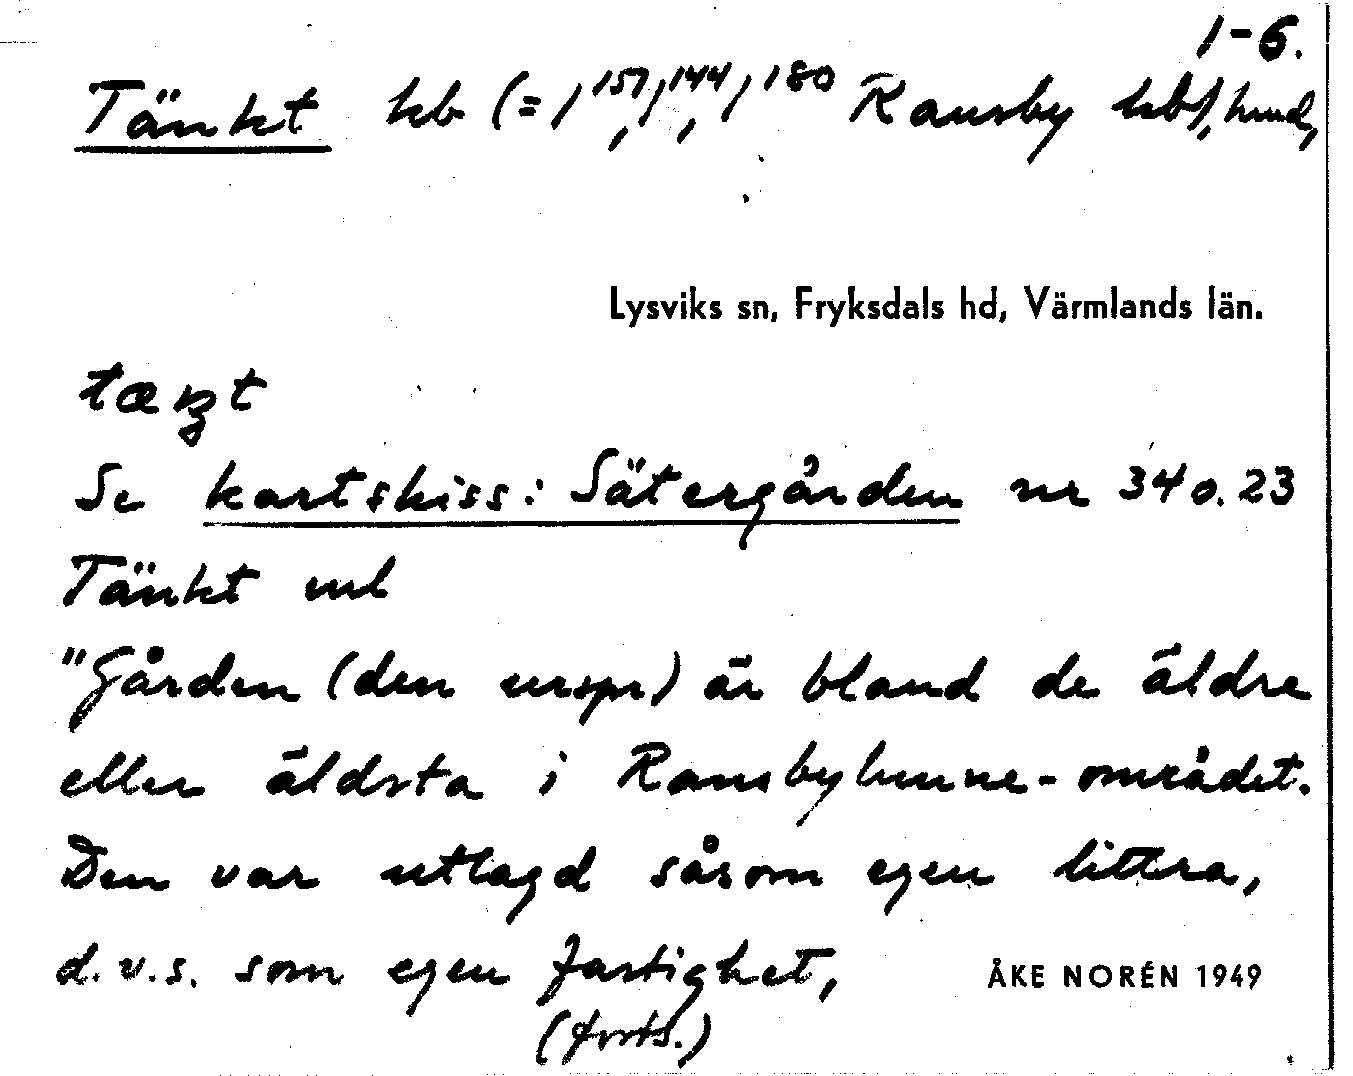 1-6.
Tänkt hb (= 1¹⁵⁷, 1¹⁴⁴, 1¹⁸⁰ Ransby hbf, hmd,
Lysviks sn, Fryksdals hd, Värmlands län.
Se kartskiss: Sätergården nr 34 o. 23
Tänkt ml
"Gården (den urspr) är bland de äldre
eller äldsta i Ransbyhmne-området.
Den var utlagd såsom egen littra,
d.v.s. som egen fastighet,
ÅKE NORÉN 1949
(forts.)